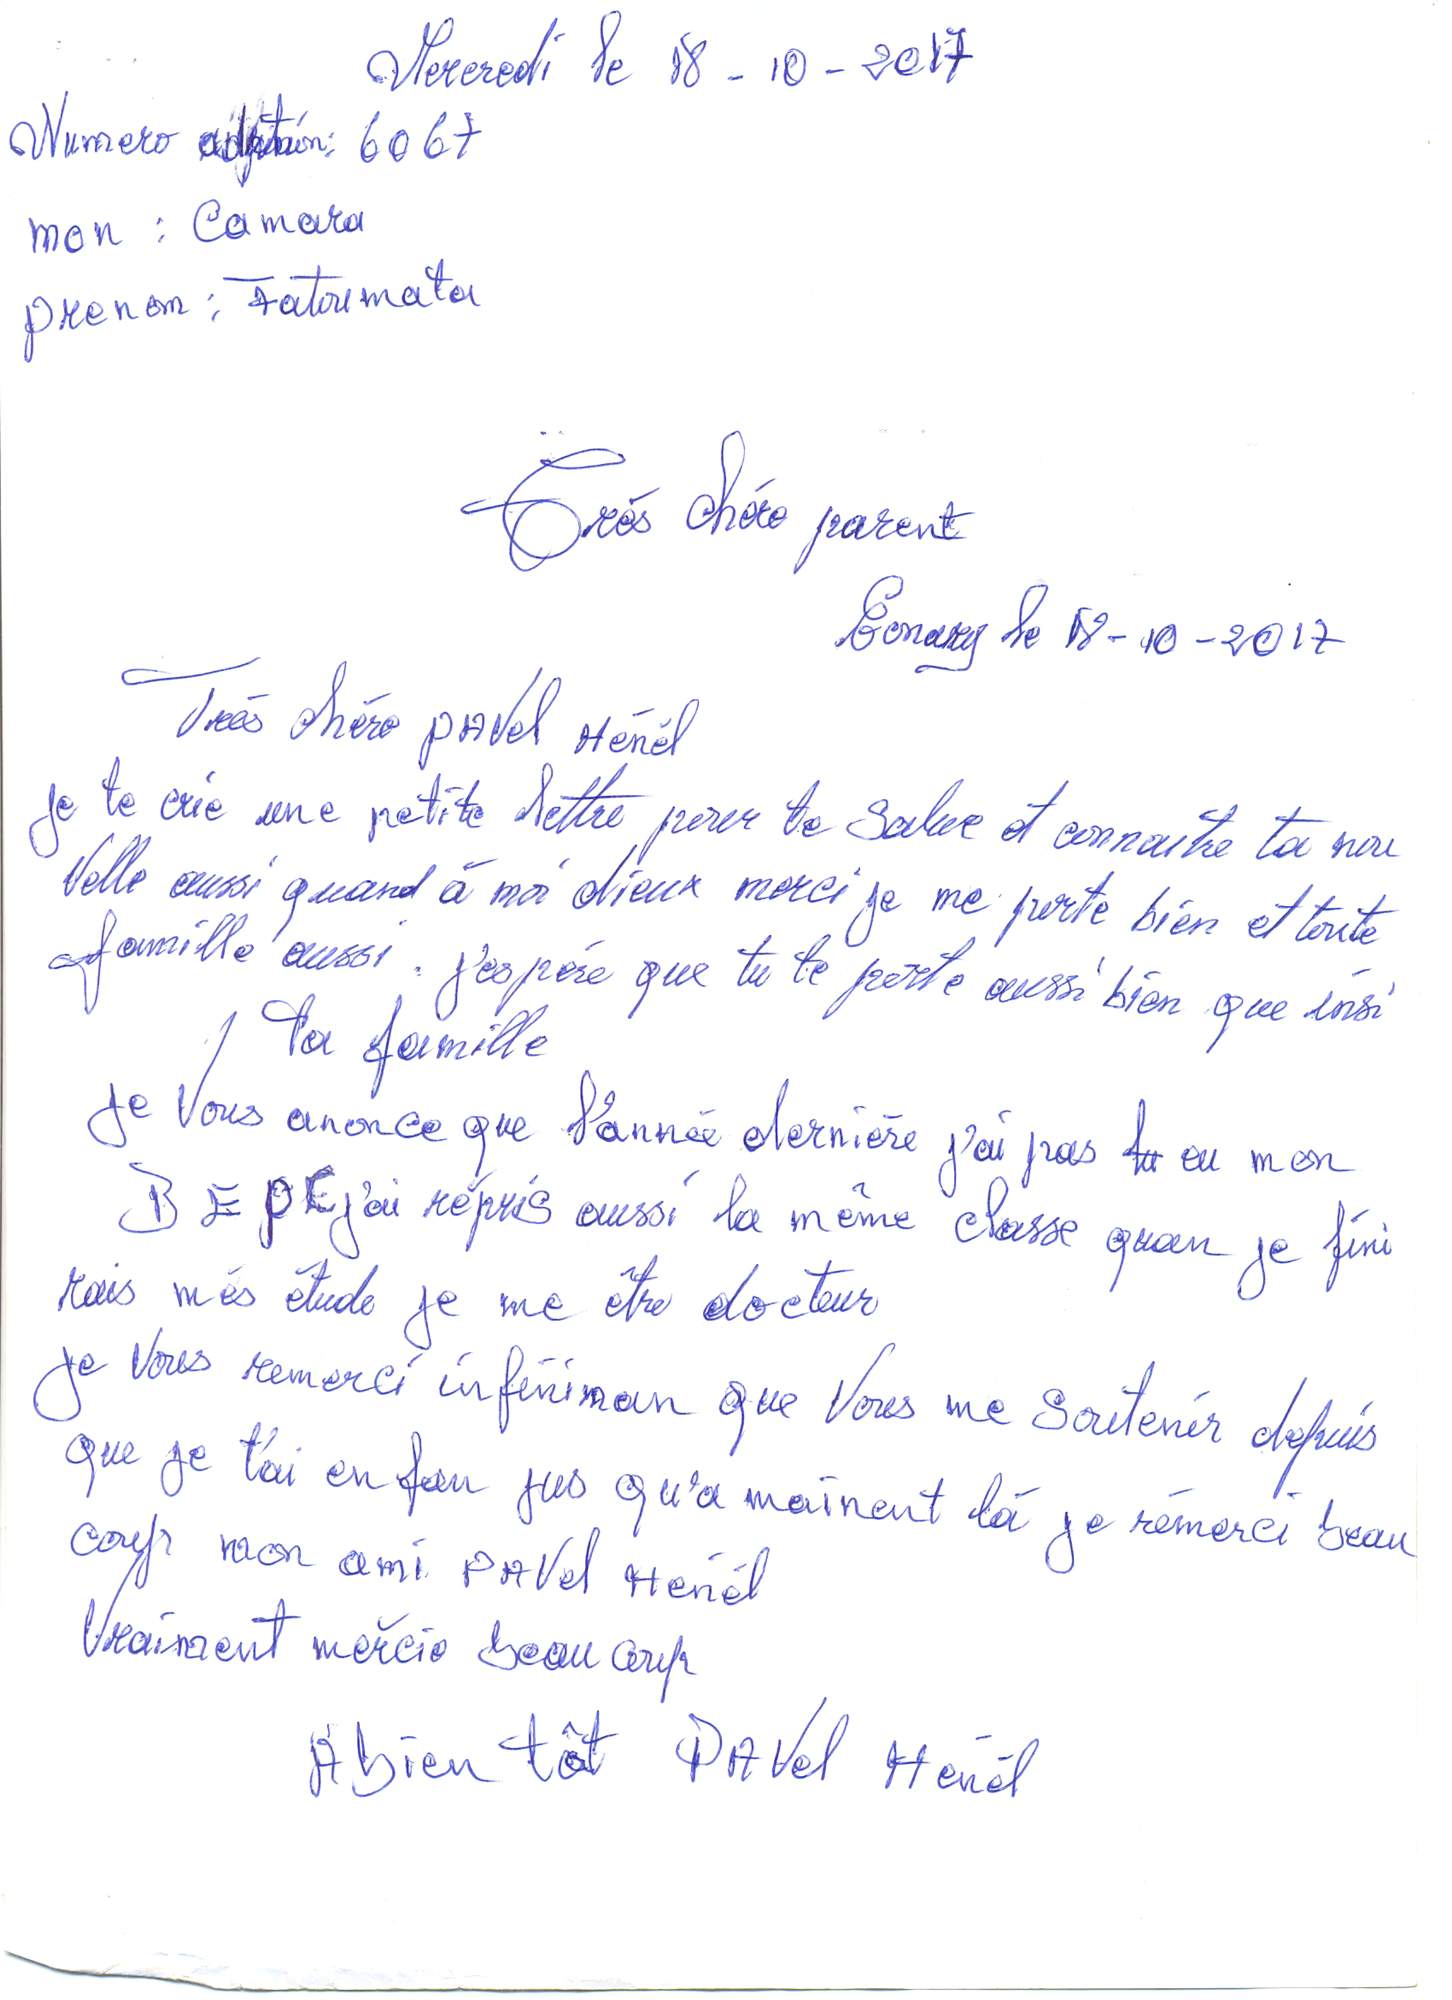 Mercredi le 18-10-2017
Numero adoption: 6067
mon : Camara
prenom : Fatoumata
Très chére parent
Conakry le 18-10-2017
Trés chére PAVel Hénél
je te crie une petite lettre pour te Salue et connaitre ta nou
velle aussi quand à moi dieux merci je me porte bien et toute
famille aussi. j'espére que tu te porte aussi bien que insi
ta famille
je vous anonce que l'année derniére j'ai pas eu mon
BEPE j'ai répris aussi la même classe quan je fini
rais més étude je me être docteur
je vous remerci infiniman que vous me soutenir depuis
que je t'ai enfan jus qu'a mainent là je rémerci beau
coup mon ami PAVel Hénél
vraiment mercie beau coup
A bien tôt PAVel Hénél